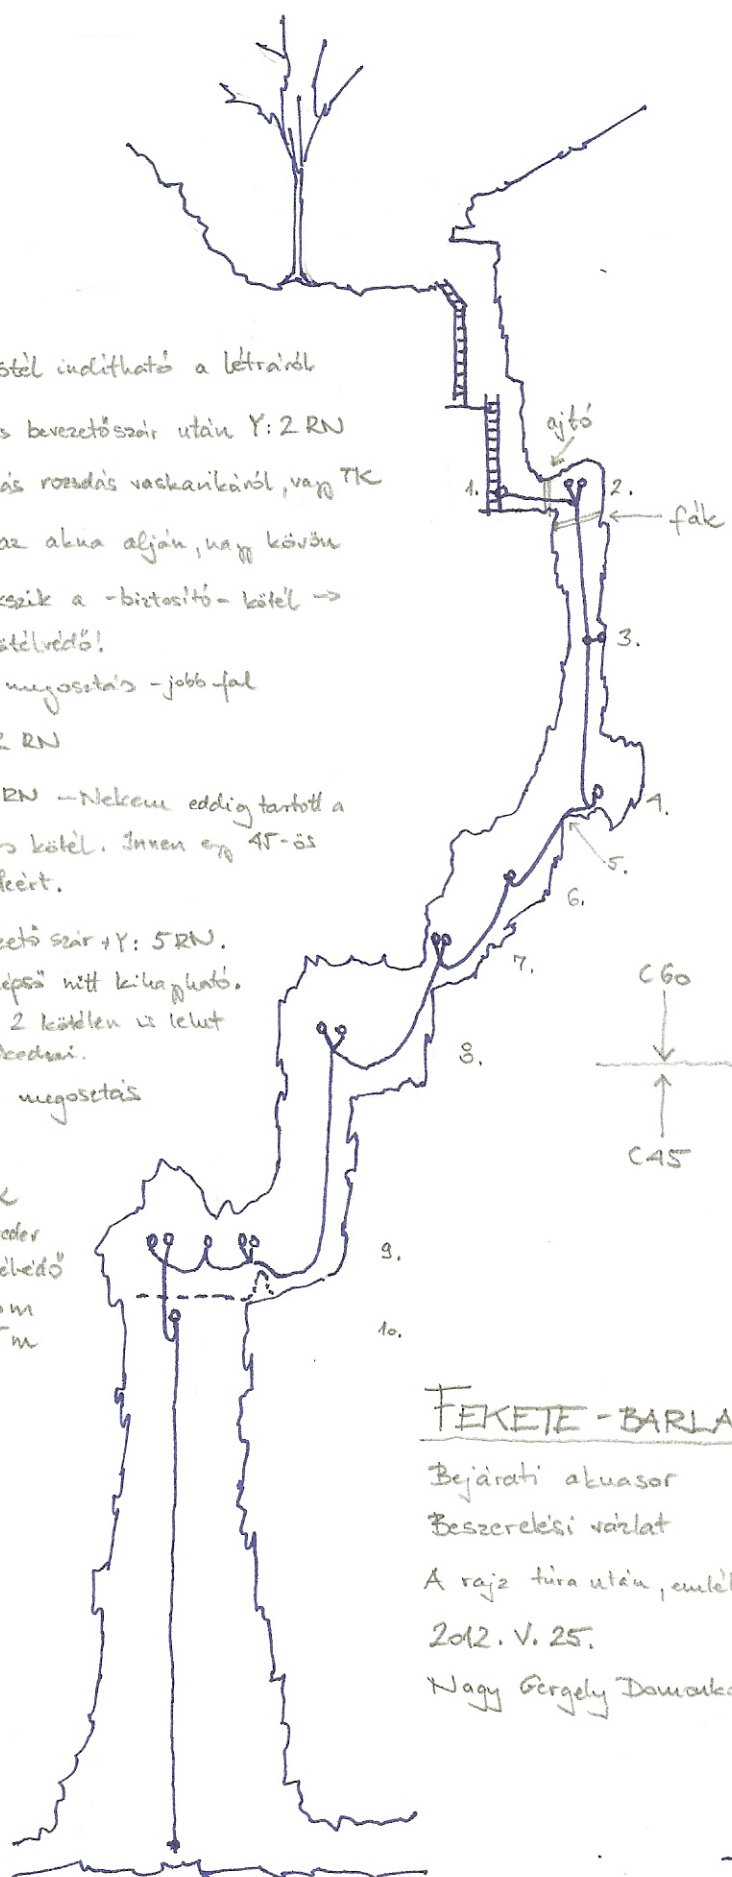 ötél indítható a létráról
s bevezetőszár után Y: 2 RN
ás rozsdás vaskarikáról, vagy TK
az akna alján, nagy kövön
kszik a -biztosító- kötél ->
ötélvédő!
megosztás - jobb fal
2 RN
RN - Nekem eddig tartott a
s kötél. Innen egy 45-ös
leért.
zető szár + Y: 5 RN.
épső nitt kihagyható.
2 kötélen is lehet
megosztás
ötélvédő
m
5 m
ajtó
fák
1.
2.
3.
4.
5.
6.
7.
8.
9.
10.
C60
C45
FEKETE - BARLA
Bejárati aknasor
Beszerelési vázlat
A rajz túra után, emlék
2012. V. 25.
Nagy Gergely Domonkos